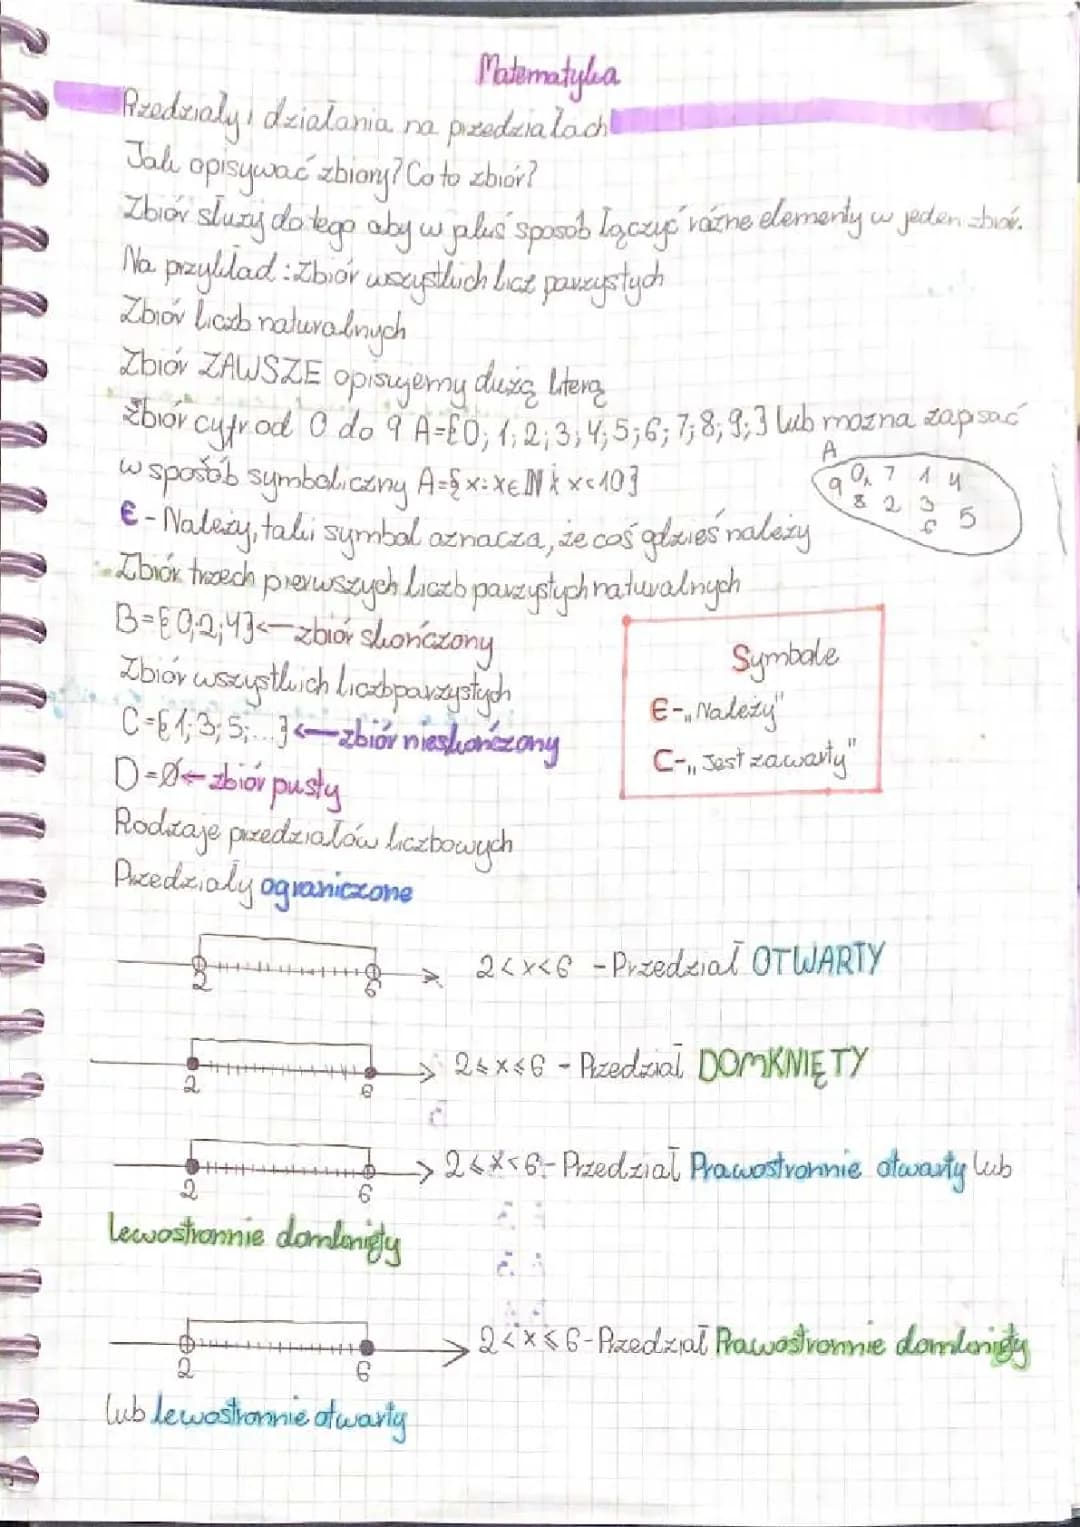 Matematyka
Przedziały i działania na przedziałach
Jak opisywać zbiory? Co to zbiór?
Zbiór służy do tego aby w jakiś sposób łączyć różne elementy w jeden zbiór.
Na przykład: Zbiór wszystkich licz parzystych
Zbiór liczb naturalnych
Zbiór ZAWSZE opisujemy dużą literą
Zbiór cyfr od 0 do 9 A={0; 1; 2; 3; 4; 5; 6; 7; 8; 9;} lub można zapisać
w sposób symboliczny A={x: x∈ℕ i x<10}
A
0, 7 1 4
9 8 2 3 5
6
∈ - Należy, taki symbol oznacza, że coś gdzieś należy
Zbiór trzech pierwszych liczb parzystych naturalnych
B={0;2;4} ← zbiór skończony
Zbiór wszystkich liczb parzystych
C={1; 3; 5;...} ← zbiór nieskończony
D=Ø ← zbiór pusty
Symbole
∈-„Należy"
⊂-„Jest zawarty"
Rodzaje przedziałów liczbowych
Przedziały ograniczone
2 6 2<x<6 - Przedział OTWARTY
2 6 2⩽x⩽6 - Przedział DOMKNIĘTY
2 6 2⩽x<6 - Przedział Prawostronnie otwarty lub
lewostronnie domknięty
2 6 2<x⩽6 - Przedział Prawostronnie domknięty
lub lewostronnie otwarty